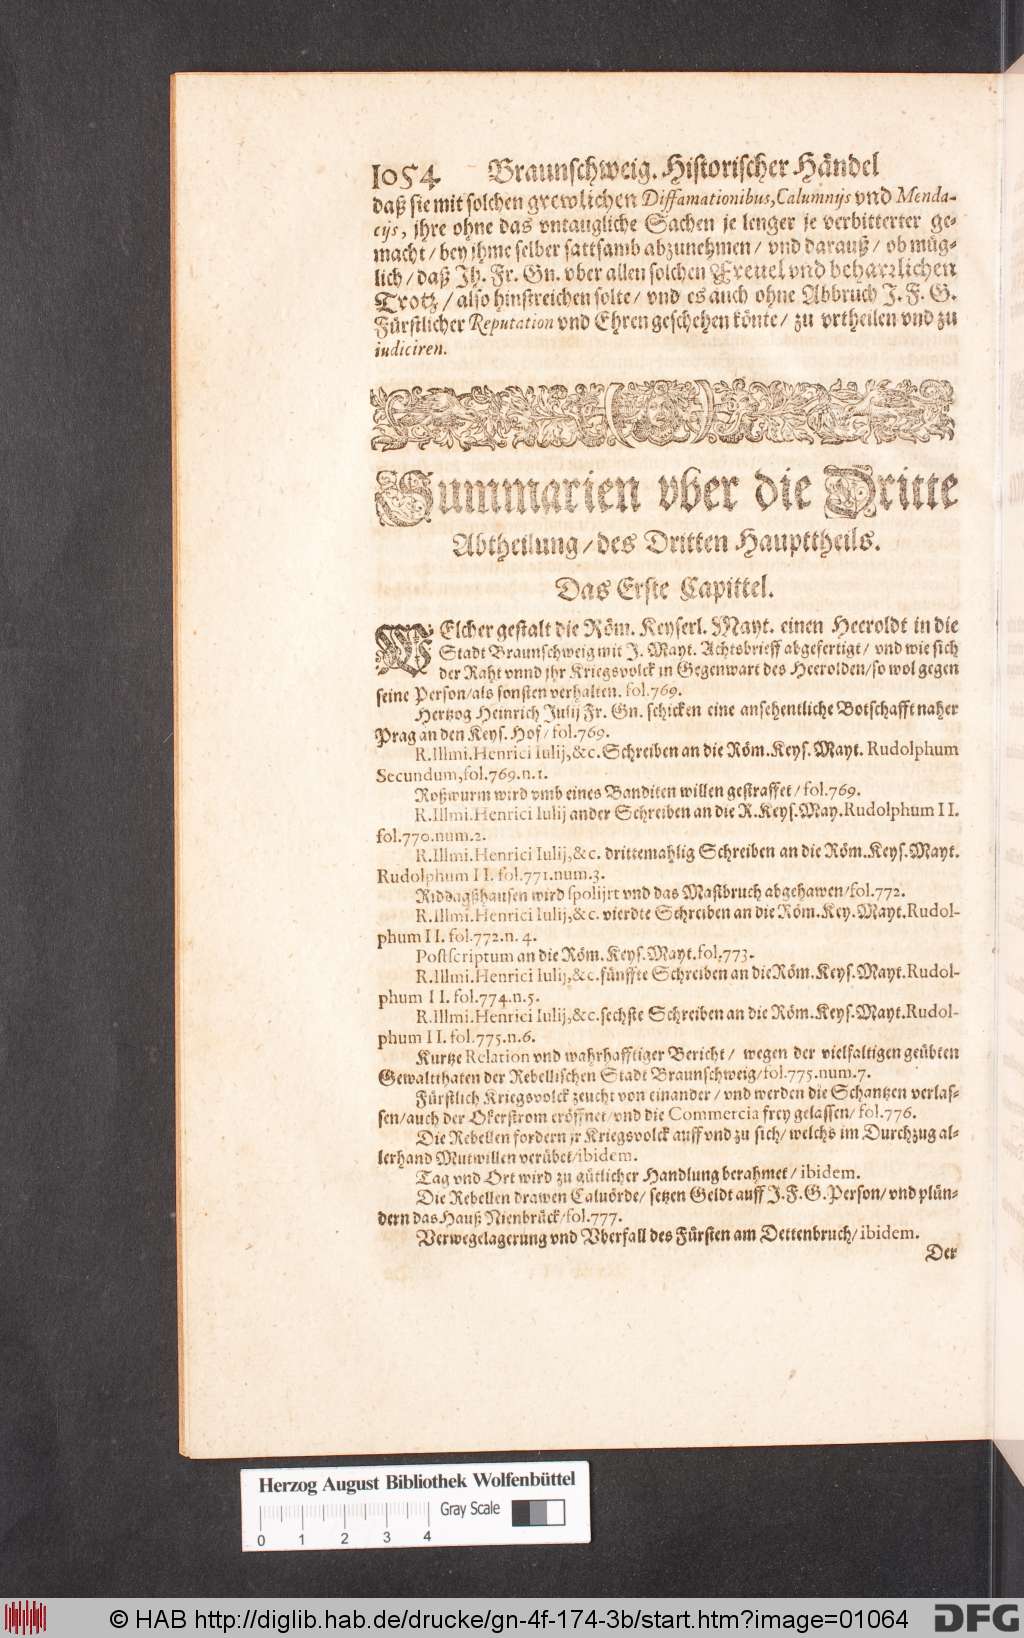 1054 Braunschweig. Historischer Händel
daß sie mit solchen grewlichen Diffamationibus, Calumnijs vnd Menda-
cijs, jhre ohne das vntaugliche Sachen je lenger je verbitterter ge-
macht / bey jhme selber sattsamb abzunehmen / vnd darauß / ob müg-
lich / daß Jh. Fr. Gn. vber allen solchen Freuel vnd beharrlichen
Trotz / also hinstreichen solte / vnd es auch ohne Abbruch J. F. G.
Fürstlicher Reputation vnd Ehren geschehen könte / zu vrtheilen vnd zu
iudiciren.
Summarien vber die Dritte
Abtheilung / des Dritten Haupttheils.
Das Erste Capittel.
WElcher gestalt die Röm. Keyserl. Mayt. einen Heeroldt in die
Stadt Braunschweig mit J. Mayt. Achtsbrieff abgefertigt / vnd wie sich
der Raht vnnd jhr Kriegsvolck in Gegenwart des Heerolden / so wol gegen
seine Person / als sonsten verhalten. fol. 769.
Hertzog Heinrich Julij Fr. Gn. schicken eine ansehentliche Botschafft naher
Prag an den Keys. Hof / fol. 769.
R. Illmi. Henrici Iulij, &c. Schreiben an die Röm. Keys. Mayt. Rudolphum
Secundum, fol. 769. n. 1.
Roßwurm wird vmb eines Banditen willen gestraffet / fol. 769.
R. Illmi. Henrici Iulij ander Schreiben an die R. Keys. May. Rudolphum II.
fol. 770. num. 2.
R. Illmi. Henrici Iulij, &c. drittemahlig Schreiben an die Röm. Keys. Mayt.
Rudolphum II. fol. 771. num. 3.
Riddagßhausen wird spolijrt vnd das Mastbruch abgehawen / fol. 772.
R. Illmi. Henrici Iulij, &c. vierdte Schreiben an die Röm. Key. Mayt. Rudol-
phum II. fol. 772. n. 4.
Postscriptum an die Röm. Keys. Mayt. fol. 773.
R. Illmi. Henrici Iulij, &c. fünffte Schreiben an die Röm. Keys. Mayt. Rudol-
phum II. fol. 774. n. 5.
R. Illmi. Henrici Iulij, &c. sechste Schreiben an die Röm. Keys. Mayt. Rudol-
phum II. fol. 775. n. 6.
Kurtze Relation vnd wahrhafftiger Bericht / wegen der vielfaltigen geübten
Gewaltthaten der Rebellischen Stadt Braunschweig / fol. 775. num. 7.
Fürstlich Kriegsvolck zeucht von einander / vnd werden die Schantzen verlas-
sen / auch der Okerstrom eröffnet / vnd die Commercia frey gelassen / fol. 776.
Die Rebellen fordern jr Kriegsvolck auff vnd zu sich / welchs im Durchzug al-
lerhand Mutwillen verübet / ibidem.
Tag vnd Ort wird zu gütlicher Handlung berahmet / ibidem.
Die Rebellen drawen Calvörde / setzen Geldt auff J. F. G. Person / vnd plün-
dern das Hauß Nienbrück / fol. 777.
Verwegelagerung vnd Vberfall des Fürsten am Dettenbruch / ibidem.
Der
Herzog August Bibliothek Wolfenbüttel
Gray Scale
0 1 2 3 4
© HAB http://diglib.hab.de/drucke/gn-4f-174-3b/start.htm?image=01064
DFG